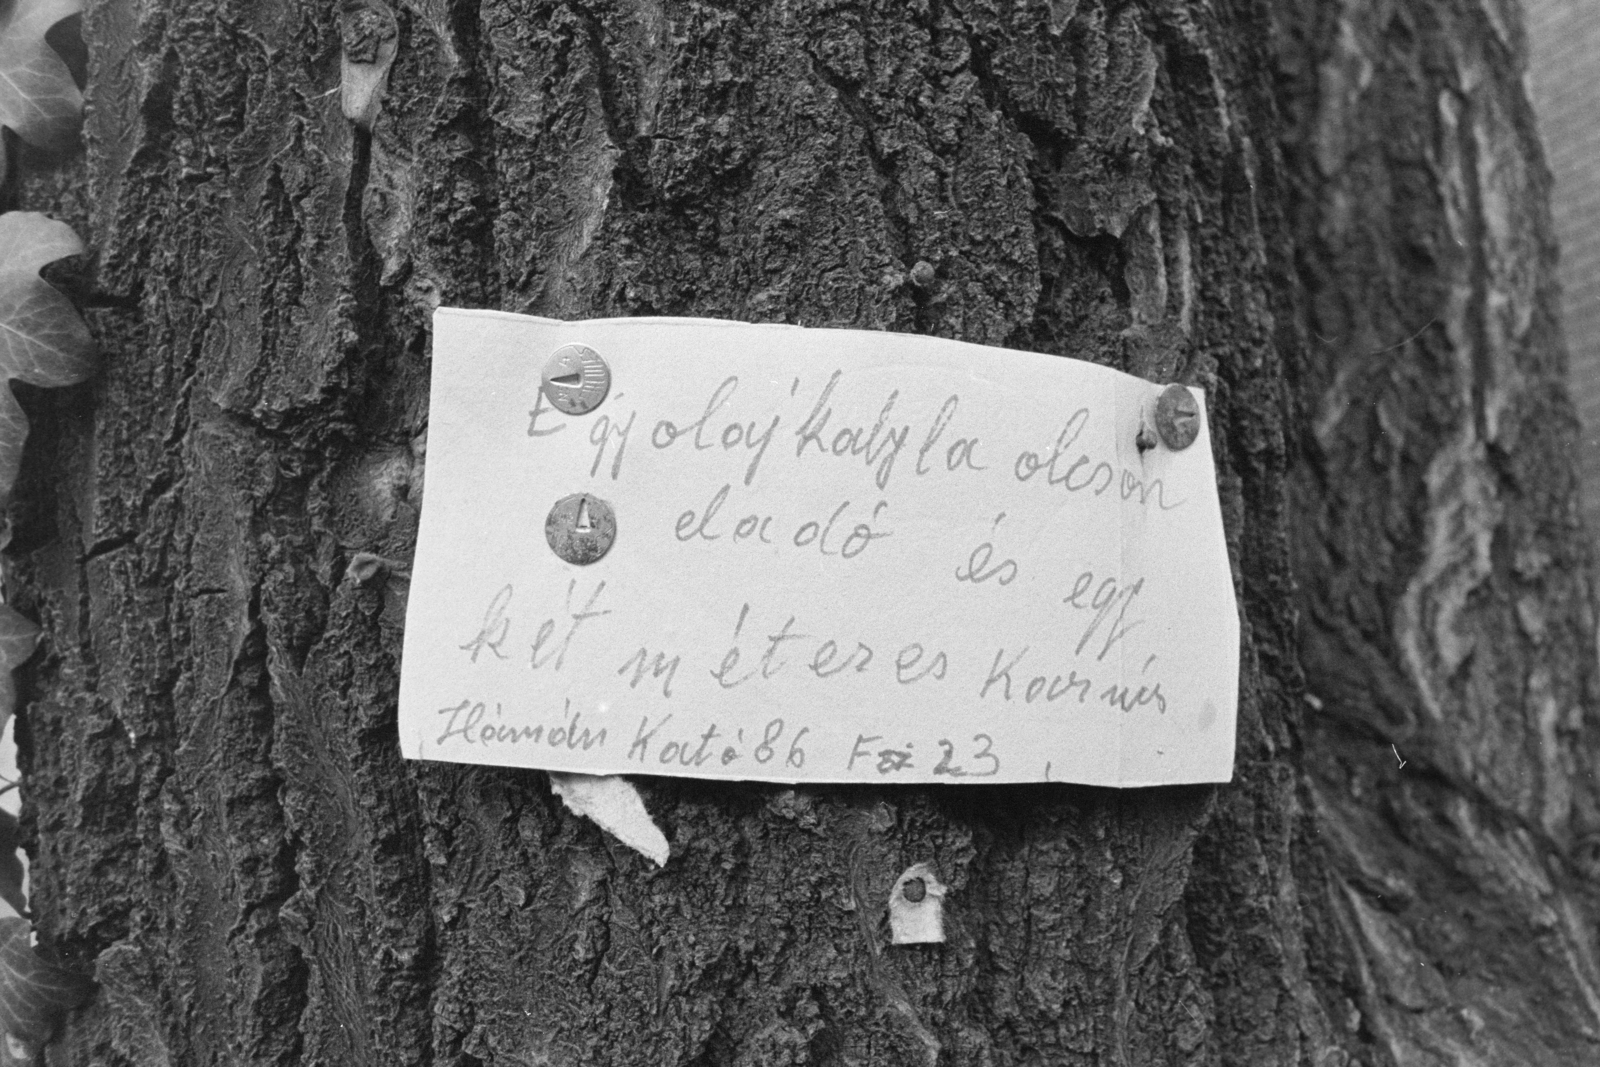 Egy olajkalyla olcson
eladó és egy
két méteres Karnis
Hámán Kató 86 Fsz 23